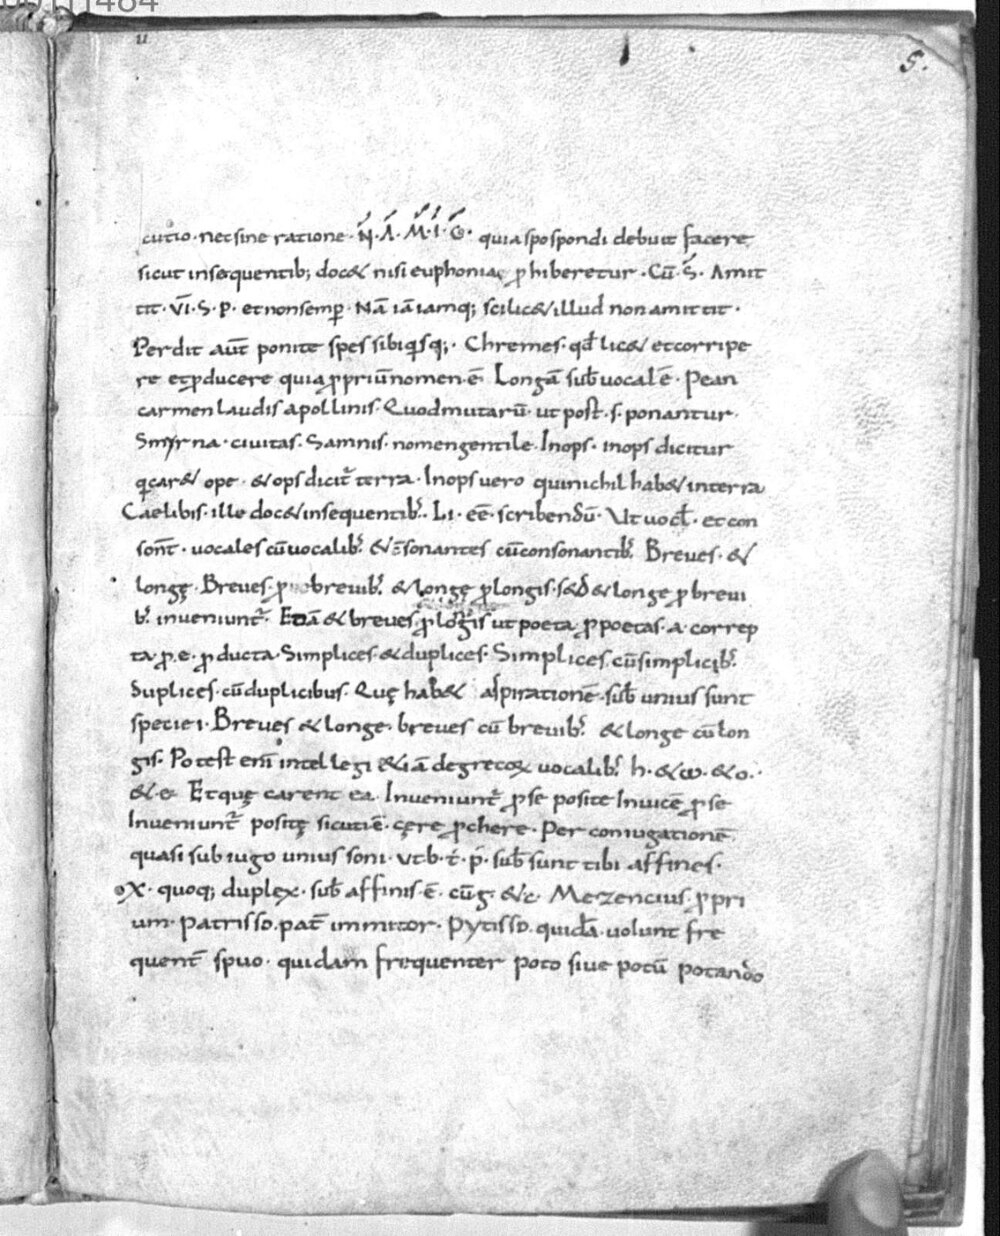 5.
cutio · nec sine ratione · N · A · M · I · G · quia spospondi debuit facere
sicut in sequentib; doc& nisi euphoniae ꝓhiberetur · Cū · S · Amit
tit · VI · S · P · et non semꝑ · Nā iā iamq; scilic& illud non amittit ·
Perdit aūt ponite spes sibi · Chremes · qđ lic& et corripe
re et ꝓducere quia ꝓpriū nomen · ē · Longā sub uocal ē · Pean
carmen laudis apollinis · Quod mutarū · ut post · s · ponantur ·
Smyrna · ciuitas · Samnis · nomen gentile · Inops · inops dicitur
q car& ope · & ops dicit terra · Inops uero qui nichil hab& in terra
Caelibis · ille doc& in sequentib · Li · eē · scribendū · Ut uocł · et con
sont · uocales cū uocalib · & sonantes cū consonantib · Breues · &
longę · Breues ꝓ breuib · & longę ꝓ longis · sed & longe ꝓ breui
b · inueniunt · Etiā & breues ꝓ longis ut poeta ꝓ poetas · a · correp
ta · ꝓ · e · ꝓducta · Simplices · & duplices · Simplices cū simplicib ·
Duplices · cū duplicibus · Quę hab& aspirationē · sub unius sunt
speciei · Breues & longe · breues cū breuib · & longe cū lon
gis · Potest enī intellegi &iā de grecoꝝ uocalib · h · & ω · & o ·
& · e · Et quę carent ea · Inueniunt ꝓ se posite Inuicē ꝓ se
Inueniunt positę sicuti ē · cęre ꝓ chere · Per coniugationē
quasi sub iugo unius soni · ut · b · t · p · sub sunt tibi affines ·
X · quoq; duplex · sub affinis · ē · cū g · & c · Mezencius ꝓpri
um · patrisso · pat immitor · pytisso · quidā · uolunt fre
quent spuo · quidam frequenter poto siue potū potando